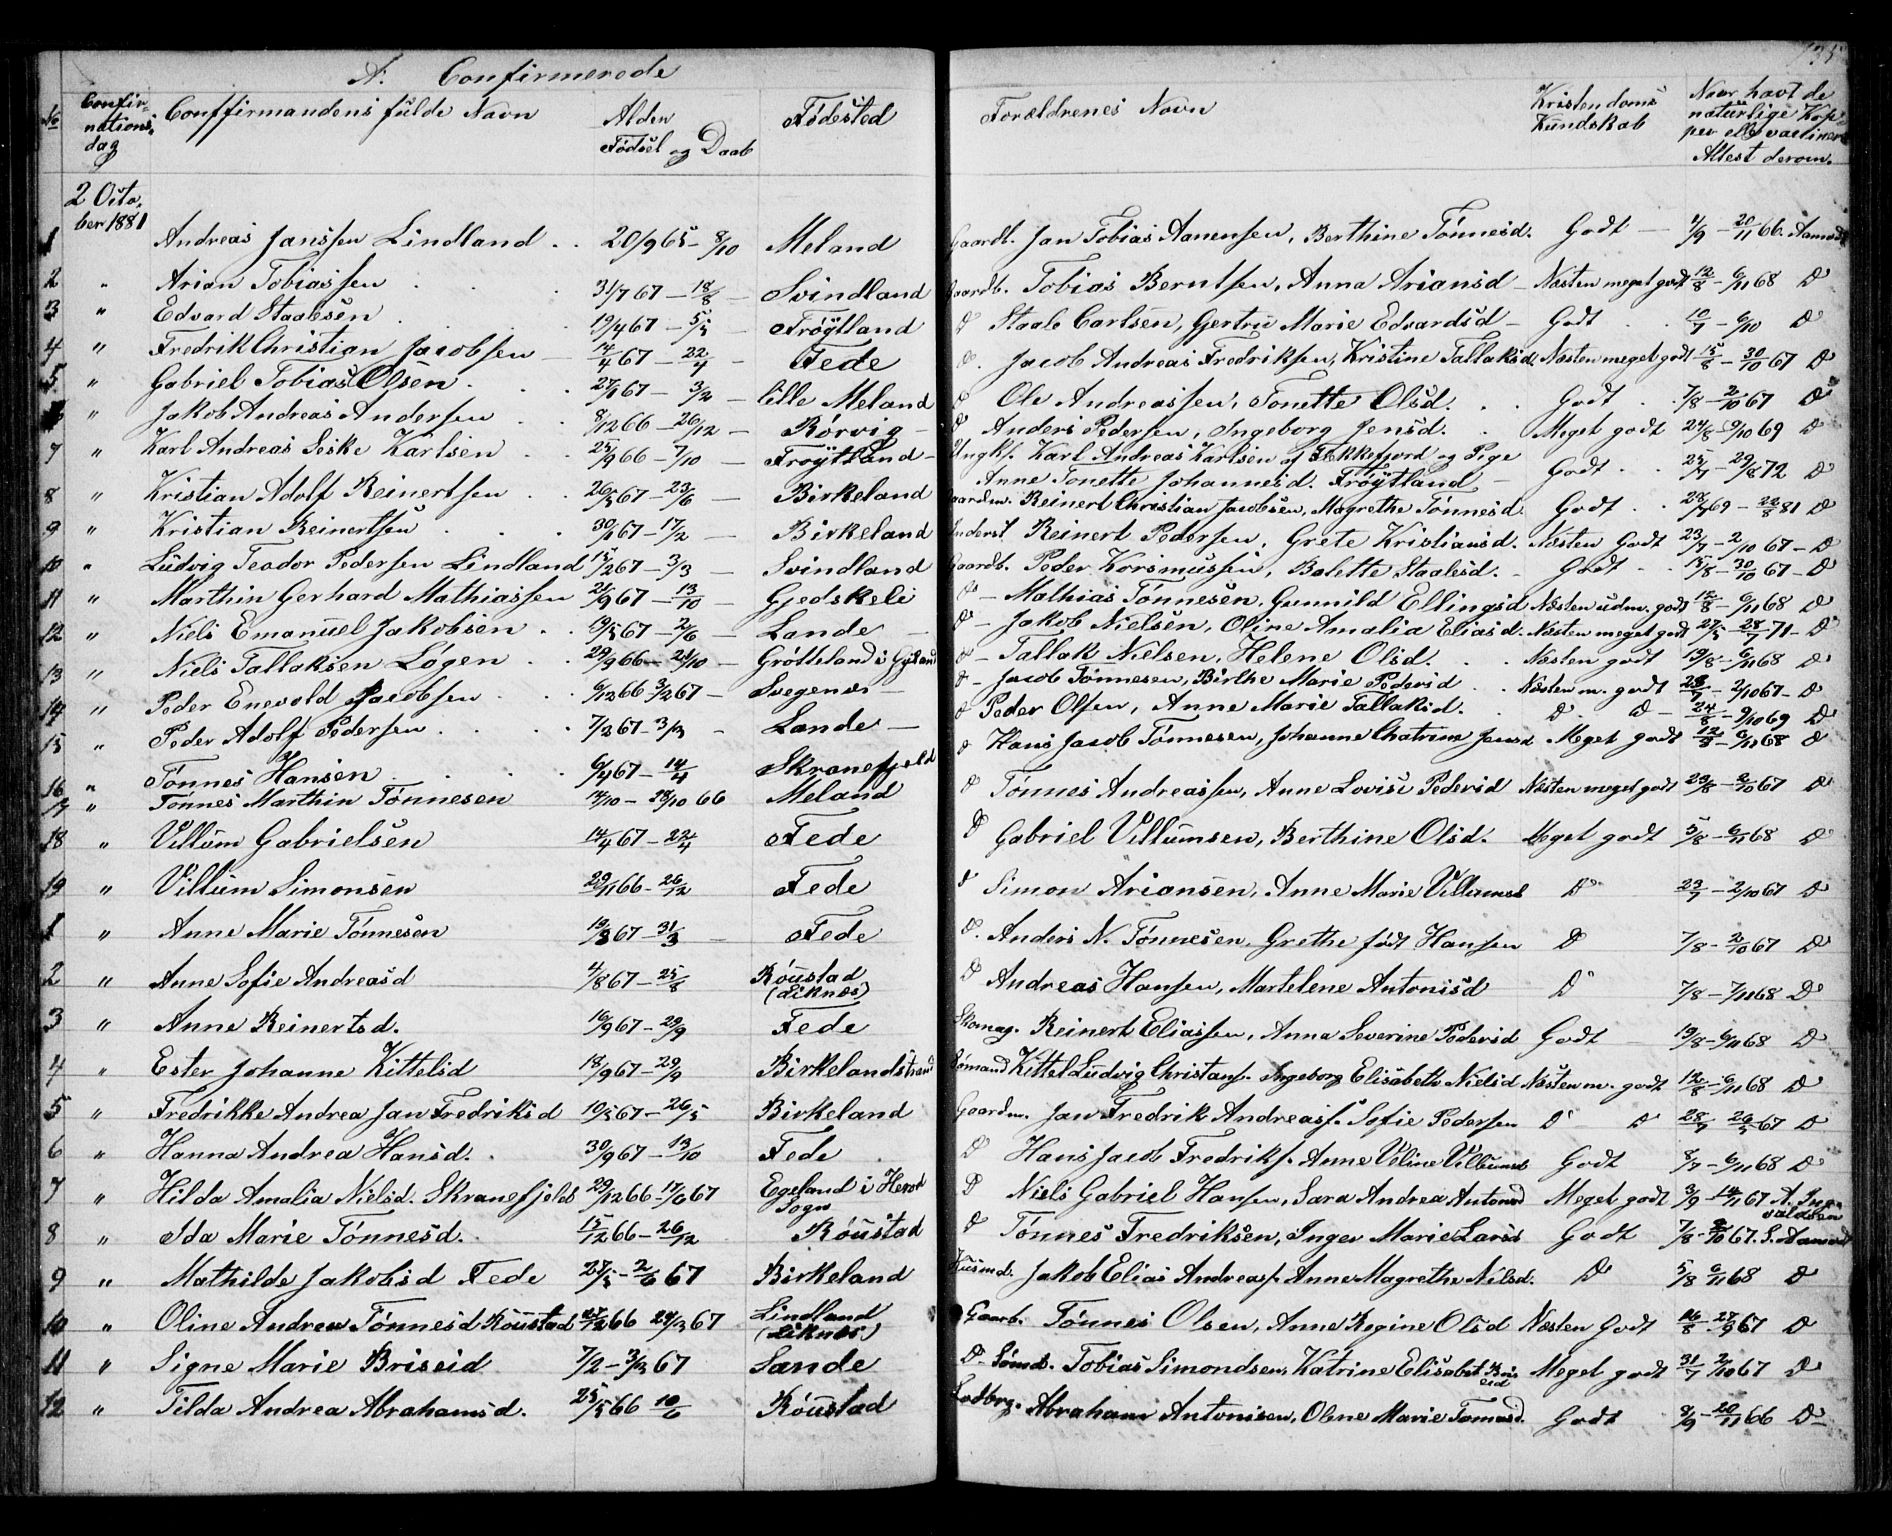 A. Confirmerede
№ Confirmations dag Conffirmandens fulde Navn Alder Fødsel og Daab Fødested Forældrenes Navn Kristendoms Kundskab Naar havt de naturlige Kopper ell. vaccineret Attest derom.
2 October 1881
1 Andreas Janssen Lindland 20/9 65 - 8/10 Meland Gaardb. Jan Tobias Aanensen, Berthine Tønnesd. Godt 4/9 - 20/11 66. Aamodt
2 " Arian Tobiassen 31/7 67 - 18/8 Svindland Gaardb. Tobias Berntsen, Anna Ariansd Næsten meget godt 12/8 - 6/11 68 D
3 " Edvard Staalesen 19/4 67 - 5/5 Frøÿtland D Staale Carlsen, Gertru Marie Edvardsd Godt 10/7 - 6/10 D
4 " Fredrik Christian Jacobsen 14/4 67 - 22/4 Fede D. Jacob Andreas Fredriksen, Kristine Tallaksd. Næsten meget godt 15/8 - 30/10 67 D
5 " Gabriel Tobias Olsen 27/1 67 - 3/2 lille Meland D Ole Andreassen, Tonette Olsd. Godt 7/8 - 2/10 67 D
6 " Jakob Andreas Andersen 8/12 66 - 26/12 Rørvig D Anders Pedersen, Ingeborg Jensd. Meget godt 24/8 - 9/10 69 D
7 " Karl Andreas Seske Karlsen 25/9 66 - 7/10 Frøÿtland Ungk. Karl Andreas Karlsen af Flekkefjord og Pige
Anne Tonette Johannesd. Frøÿtland Godt 25/7 - 29/8 72 D
8 " Kristian Adolf Reinertsen 26/5 67 - 23/6 Birkeland Gaardm. Reinert Christian Jacobsen, Magrethe Tønnesd. Godt 69 - 22/8 81 D
9 " Kristian Reinertsen 30/1 67 - 17/2 Birkeland Inderst. Reinert Pedersen, Grete Kristiansd. Næsten Godt 23/7 - 2/10 67 - D
10 " Ludvig Teodor Pedersen Lindland 15/2 67 - 3/3 Svindland Gaardb. Peder Korsmussen, Balette Staalesd. Godt 15/8 - 30/10 67 - D
11 " Marthin Gerhard Mathiassen 21/9 67 - 13/10 Gjedskeli D - Mathias Tønnesen, Gunnild Ellingsd Næsten udm. godt 12/8 - 6/11 68 D
12 " Niels Emanuel Jakobsen 19/5 67 - 2/6 Lande D - Jakob Nielsen, Oline Amalia Eliasd. Næsten meget godt 27/5 - 28/7 71 - D
13 " Niels Tallaksen Løgen 29/9 66 - 21/10 Grøtteland i Gyland D - Tallak Nielsen, Helene Olsd. Næsten godt 19/8 - 6/11 68 D
14 " Peder Enevold Jacobsen 6/12 66 3/2 67 Svegenæs D - Jacob Tønnesen, Birthe Marie Pedersd Næsten m. godt 23/7 - 2/10 67 - D
15 " Peder Adolf Pedersen 7/2 67 - 3/3 Lande D Peder Olsen, Anne Marie Tallaksd. D D - 24/8 - 9/10 69 D
16 " Tønnes Hansen 6/4 67 - 14/4 Skranefjeld D Hans Jacob Tønnesen, Johanne Chatrine Jensd Meget godt 12/8 - 6/11 68 D
17 " Tønnes Marthin Tønnesen 14/10 - 28/10 66 Meland D Tønnes Andreassen, Anne Lovise Pedersd Næsten meget godt 23/8 - 2/10 67 D
18 " Villum Gabrielsen 14/4 67 - 22/4 Fede D Gabriel Villumsen, Berthine Olsd. Meget godt 5/8 - 6/11 68 D
19 " Villum Simonsen 29/11 66 - 26/12 Fede D Simon Ariansen, Anne Marie Villumsd D 23/7 - 2/10 67 D
1 " Anne Marie Tønnesen 19/3 67 - 31/3 Fede D. Anders N. Tønnesen, Grethe født Hansen D 7/8 - 2/10 67 D
2 " Anne Sofie Andreasd 4/8 67 - 25/8 Røustad (Liknæs) D Andreas Hansen, Martelene Antonisd D 7/8 - 7/11 68 D
3 " Anne Reinertsd. 16/9 67 - 29/9 Fede Skomag. Reinert Eliassen, Anna Severine Pedersd Godt 19/8 - 6/11 68 D
4 " Ester Johanne Kittelsd 18/9 67 - 29/9 Birkelandstrand Sømand Kittel Ludvig Christians. Ingeborg Elisabeth Nielsd Næsten m. godt 12/8 - 6/11 68 D
5 " Fredrikke Andrea Jan Fredriksd 10/5 67 - 26/5 Birkeland Gaardm. Jan Fredrik Andreass. Sofie Pedersen D D 28/7 29/9 67 D
6 " Hanna Andrea Hansd. 30/9 67 - 13/10 Fede D Hans Jacob Fredriks. Anne Veline Villumsd Godt 8/7 - 6/11 68 D
7 " Hilda Amalia Nielsd. Skranefjeld 29/12 66 - 17/6 67 Egeland i Herod Sogn D Niels Gabriel Hansen, Sara Andrea Antonsd Meget godt 3/9 - 14/11 67 A. Ingvaldsen
8 " Ida Marie Tønnesd. 15/12 66 - 26/12 Røustad D Tønnes Fredriksen, Inger Marie Larsd Godt 7/8 - 2/10 67. S. Aamodt
9 " Mathilde Jakobsd Fede 27/5 - 2/6 67 Birkeland Husmd. Jakob Elias Andreass. Anne Magrethe Nilsd. D 5/8 6/11 68 D
10 " Oline Andrea Tønnesd Røustad 27/12 66 24/3 67 Lindland (Liknæs) Gaarb. Tønnes Olsen, Anne Regine Olsd Næsten Godt 16/8 - 27/9 67 D
11 " Signe Marie Briseid 7/2 - 3/3 67 Sande D Sømd. Tobias Simondsen, Katrine Elisabet Briseid Meget godt 31/7 2/10 67 D
12 " Tilda Andrea Abrahamsd. 25/5 66 10/6 Røustad Abraham Antonisen, Oline Marie Tønnesd. Godt 9/9 - 20/11 66 D